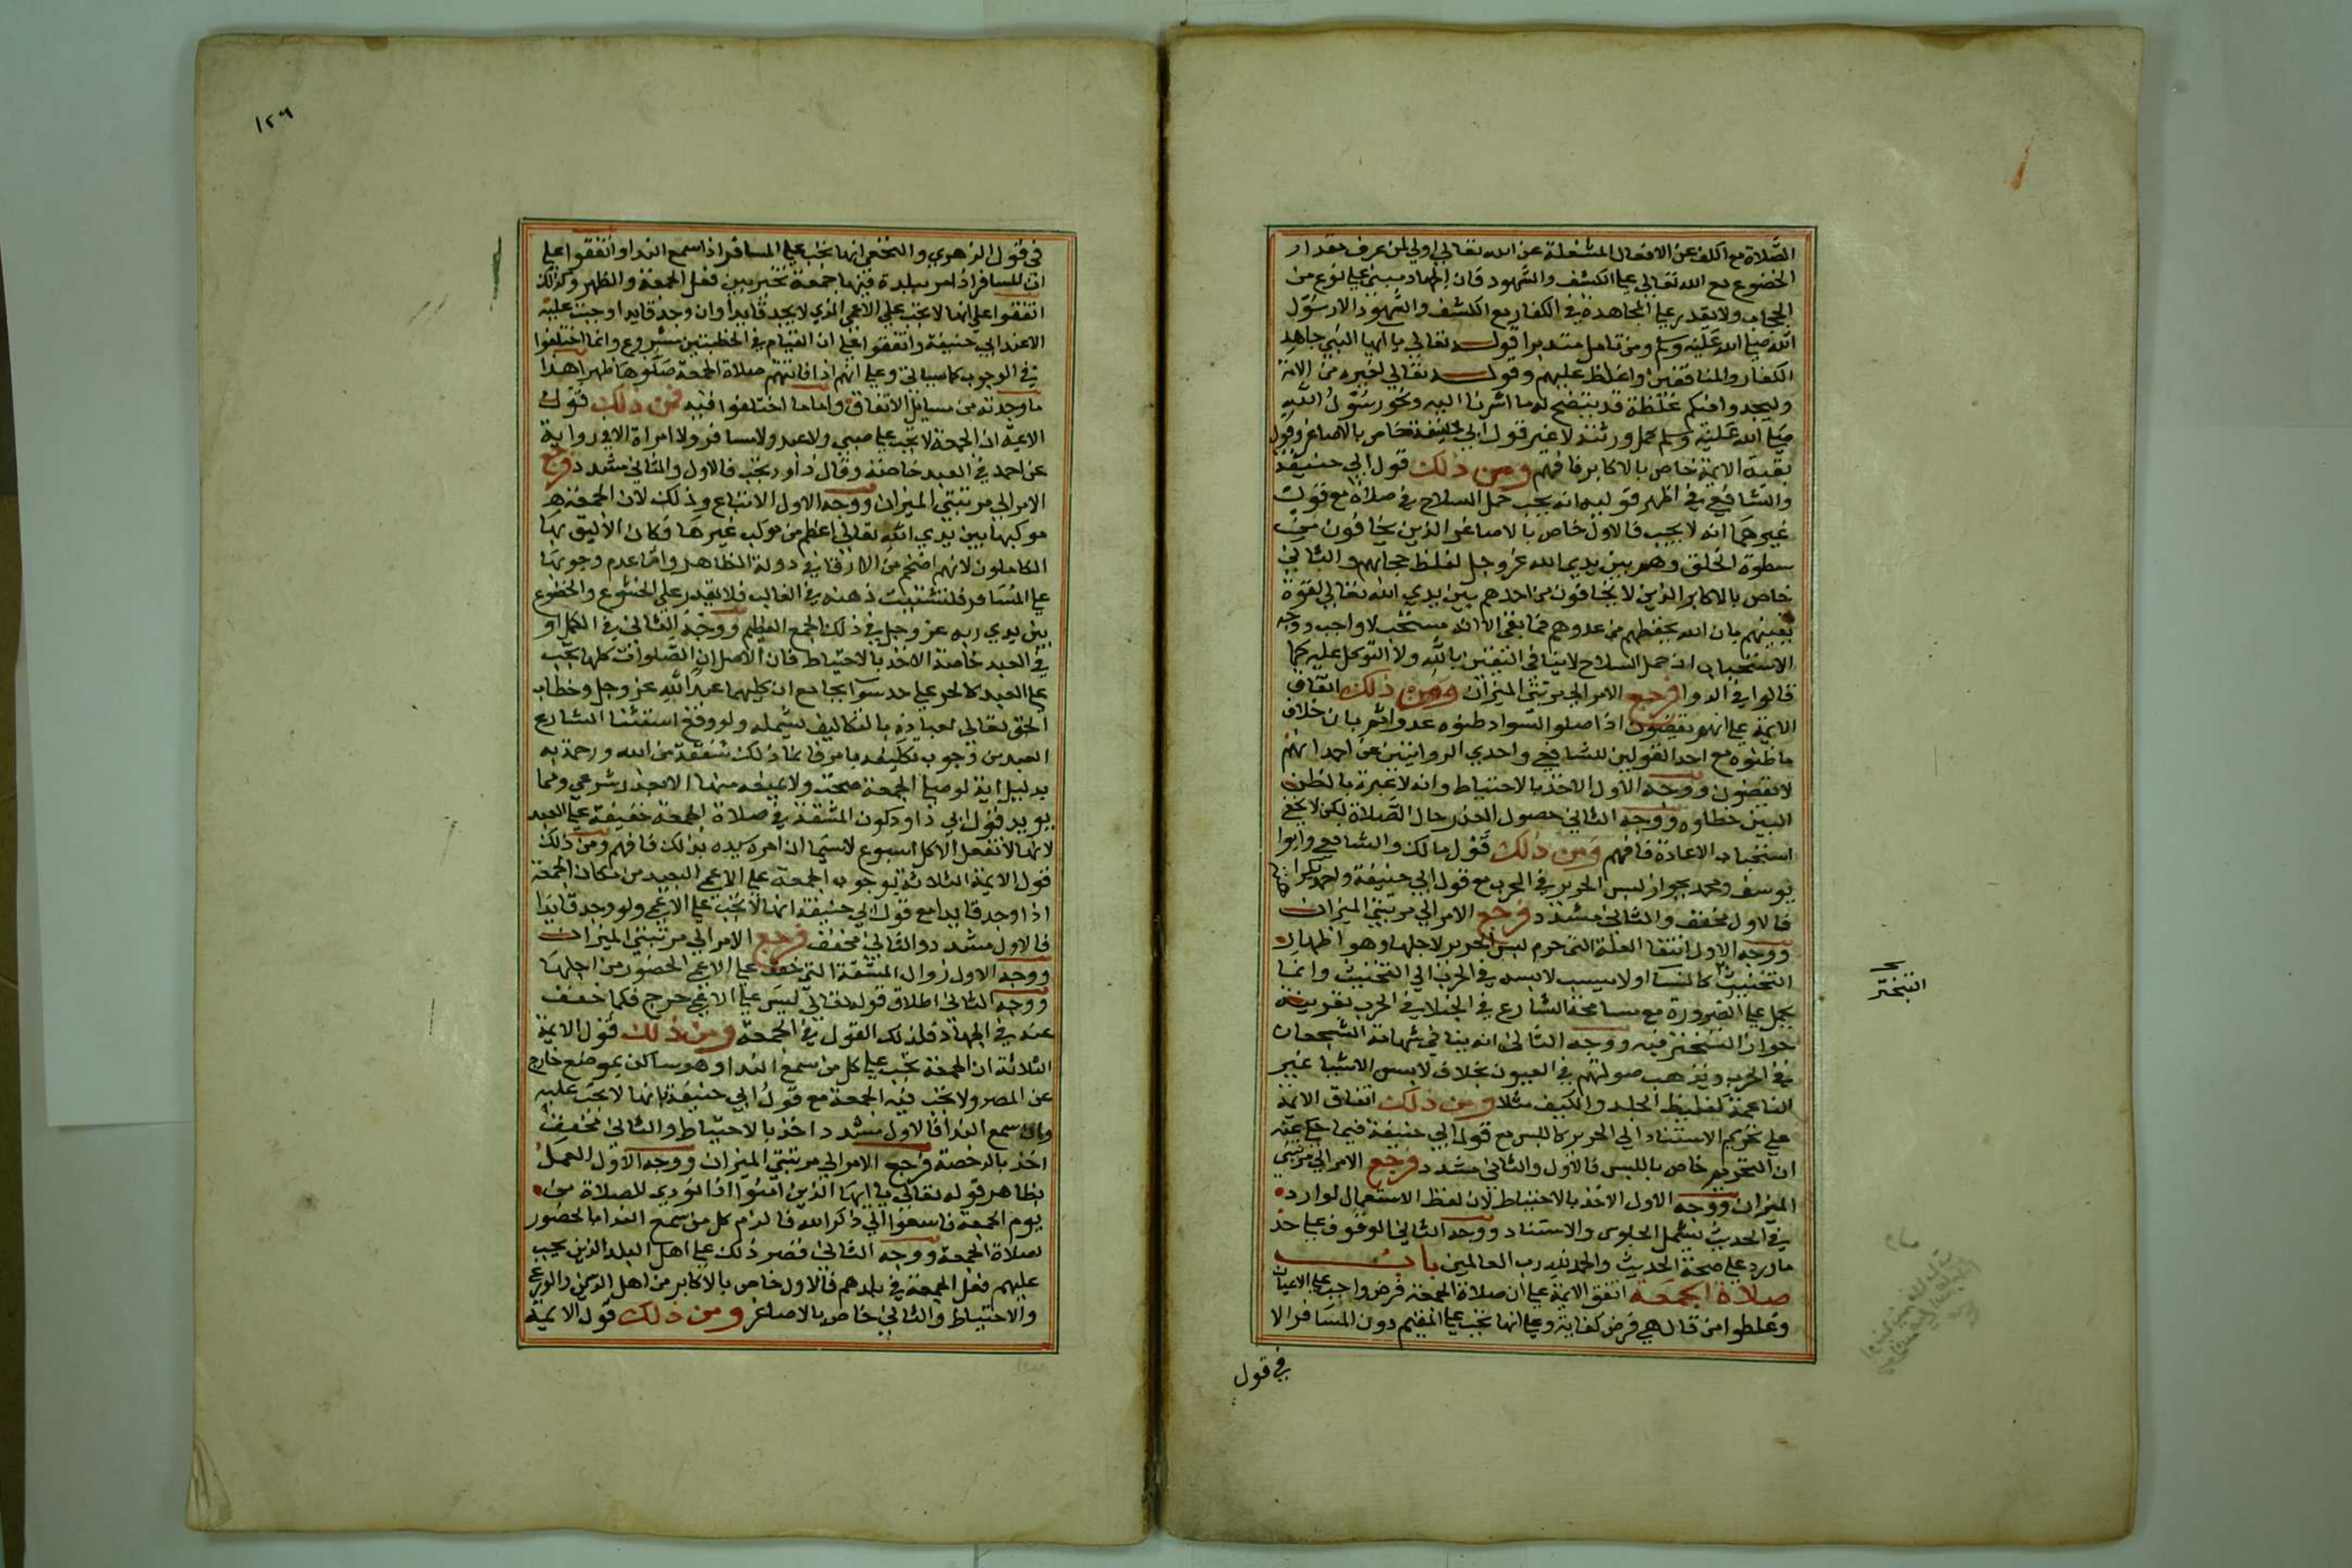 الصلاة مع الكف عن الافعال المشغلة عن الله تعالي اولي لمن عرف مقدار
الخضوع مع الله تعالي علي الكشف والشهود فان الجهاد مبني علي نوع من
الحجاب ولا يقدر علي المجاهدة في الكفار مع الكشف والشهود الا رسول
الله صلي الله عليه وسلم ومن تامل متدبرا قوله تعالي يا ايها النبي جاهد
الكفار والمنافقين واغلظ عليهم وقوله تعالي لغيره من الامة
وليجدوا فيكم غلظة قد يتضح له ما اشرنا اليه ونحو رسول الله
صلي الله عليه وسلم كمل ورثته لا غير قول ابي حنيفة خاص بالاصاغر وقول
بقية الايمة خاص بالاكابر فافهم ومن ذلك قول ابي حنيفة
والشافعي في اظهر قوليه انه يجب حمل السلاح في صلاة مع قول
غيرهما انه لا يجب فالاول خاص بالاصاغر الذين يخافون من
سطوة الخلق وهم بين يدي الله عز وجل لغلظ حجابهم والثاني
خاص بالاكابر الذين لا يخافون من احد هم بين يدي الله تعالي لقوة
يقينهم بان الله يحفظهم من عدوهم فما بقي الا انه مستحب لا واجب ووجه
الاستحباب ان حمل السلاح لا ينافي اليقين بالله ولا التوكل عليه كما
قالوا في الدوا فرجع الامر الي مرتبتي الميزان ومن ذلك اتفاق
الايمة علي انهم يقضون اذا صلوا لسواد ظنوه عدوا ثم بان خلاف
ما ظنوه مع احد القولين للشافعي واحدي الروايتين عن احمد انهم
لا يقضون ووجه الاول الاخذ بالاحتياط وانه لا عبرة بالظن
البين خطاوه ووجه الثاني حصول العذر حال الصلاة لكن لا يخفي
استحباب الاعادة فافهم ومن ذلك قول مالك والشافعي وابوا
يوسف ومحمد بجواز لبس الحرير في الحرب مع قول ابي حنيفة واحمد بكراهته
فالاول مخفف والثاني مشدد فرجع الامر الي مرتبتي الميزان
ووجه الاول انتفا العلة التي حرم لبس الحرير لاجلها وهو اظهار
التخنيث كالنسا او لا ينسب لابسه في الحرب الي التخنيث وانما
يحمل علي الضرورة مع مسامحة الشارع في الخيلا في الحرب بقرينة
جواز التبختر فيه ووجه الثاني انه ينافي شهامة الشجعان
في الحرب ويذهب صولتهم في العيون بخلاف لابس الاشيا غير
الناعمة كغليظ الجلد والكيف مثلا ومن ذلك اتفاق الايمة
علي تحريم الاستناد الي الحرير كاللبس مع قول ابي حنيفة فيما حكي عنه
ان التحريم خاص باللبس فالاول والثاني مشدد فرجع الامر الي مرتبتي
الميزان ووجه الاول الاخذ بالاحتياط لان لفظ الاستعمال الوارد
في الحديث يشمل الجلوس والاستناد ووجه الثاني الوقوف علي حد
ما ورد علي صحة الحديث والحمد لله رب العالمين باب
صلاة الجمعة اتفق الايمة علي ان صلاة الجمعة فرض واجب علي الاعيان
وغلطوا من قال هي فرض كفاية وعلي انها تجب علي المقيم دون المسافر الا
في قول
التبختر
١٢٦
في قول الزهري والنخعي انها تجب علي المسافر اذا سمع الندا واتفقوا علي
ان المسافر اذا مر ببلدة فيها جمعة تخير بين فعل الجمعة والظهر وكذلك
اتفقوا علي انها لا تجب علي الاعمي الذي لا يجد قايدا وان وجد قايدا وجبت عليه
الا عند ابي حنيفة واتفقوا علي ان القيام في الخطبتين مشروع وانما اختلفوا
في الوجوب كما سياتي وعلي انهم اذا فاتتهم صلاة الجمعة صلوها ظهرا هذا
ما وجدته من مسايل الاتفاق واما ما اختلفوا فيه فمن ذلك قول
الايمة ان الجمعة لا تجب علي صبي ولا عبد ولا مسافر ولا امراة الا في رواية
عن احمد في العبد خاصة وقال داود تجب فالاول والثاني مشدد فرجع
الامر الي مرتبتي الميزان ووجه الاول الاتباع وذلك لان الجمعة هو
موكبها بين يدي الله تعالي اعظم من موكب غيرها فكان الاليق بها
الكاملون لانهم اضخم من الارقا في دولة الظاهر واما عدم وجوبها
علي المسافر فلتشتت ذهنه في الغالب فلا يقدر علي الخشوع والخضوع
بين يدي ربه عز وجل في ذلك الجمع العظيم ووجه الثاني في الكل او
في العبد خاصة الاخذ بالاحتياط فان الاصل ان الصلوات كلها تجب
علي العبد كالحر علي حد سوا بجامع ان كليهما عبد الله عز وجل وخطاب
الحق تعالي لعباده بالتكاليف يشمله ولو وقع استثنا الشارع
العبد من وجوب تكليفه بامر فانما ذلك شفقة من الله ورحمة به
بدليل انه لو صلي الجمعة صحت ولا عتيقه منها الا بعذر شرعي ومما
يويد قول ابي داود كون المشقة في صلاة الجمعة خفيفة علي العبد
لانها لا تفعل الا كل اسبوع لا سيما ان امره سيده بذلك فافهم ومن ذلك
قول الايمة الثلاثة بوجوب الجمعة علي الاعمي البعيد من مكان الجمعة
اذا وجد قايدا مع قول ابي حنيفة انها لا تجب علي الاعمي ولو وجد قايدا
فالاول مشدد والثاني مخفف فرجع الامر الي مرتبتي الميزان
ووجه الاول زوال المشقة التي خفف علي الاعمي الحضور من اجلها
ووجه الثاني اطلاق قوله تعالي ليس علي الاعمي حرج فكما خفف
عنه في الجهاد فلذلك القول في الجمعة ومن ذلك قول الايمة
الثلاثة ان الجمعة تجب علي كل من سمع الندا وهو ساكن بموضع خارج
عن المصر ولا تجب فيه الجمعة مع قول ابي حنيفة بانها لا تجب عليه
وان سمع الندا فالاول مشدد اخذ بالاحتياط والثاني مخفف
اخذ بالرخصة فرجع الامر الي مرتبتي الميزان ووجه الاول العمل
بظاهر قوله تعالي يا ايها الذين امنوا اذا نودي للصلاة من
يوم الجمعة فاسعوا الي ذكر الله فالزم كل من سمع الندا بالحضور
لصلاة الجمعة ووجه الثاني قصر ذلك علي اهل البلد الذين يجب
عليهم فعل الجمعة في بلدهم فالاول خاص بالاكابر من اهل الدين والورع
والاحتياط والثاني خاص بالاصاغر ومن ذلك قول الايمة